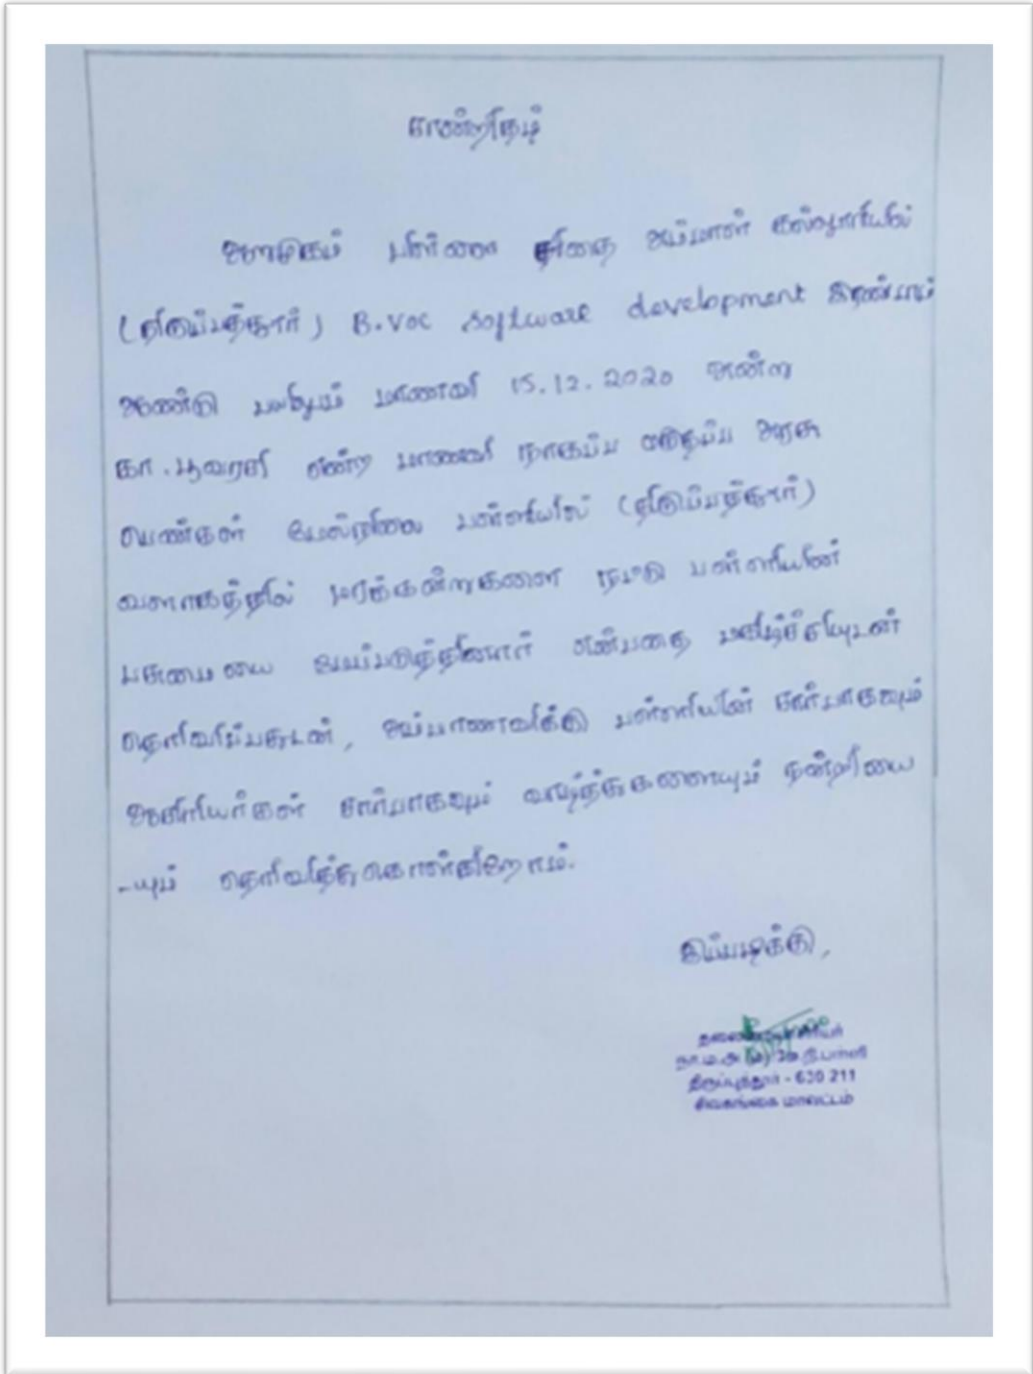 சான்றிதழ்
ஆறுமுகம் பிள்ளை சீதை அம்மாள் கல்லூரியில்
(திருப்பத்தூர்) B.Voc software development இரண்டாம்
ஆண்டு பயிலும் மாணவி 15.12.2020 அன்று
கா.பூவரசி என்ற மாணவி நாகப்ப மருதப்ப அரசு
பெண்கள் மேல்நிலை பள்ளியில் (திருப்பத்தூர்)
வளாகத்தில் மரக்கன்றுகளை நட்டு பள்ளியின்
பசுமையை மேம்படுத்தினார் என்பதை மகிழ்ச்சியுடன்
தெரிவிப்பதுடன், அம்மாணவிக்கு பள்ளியின் சார்பாகவும்
ஆசிரியர்கள் சார்பாகவும் வாழ்த்துகளையும் நன்றியை
-யும் தெரிவித்துகொள்கிறோம்.
இப்படிக்கு,
நா.ம.அ. மே.நி.பள்ளி
திருப்புத்தூர் - 630 211
சிவகங்கை மாவட்டம்